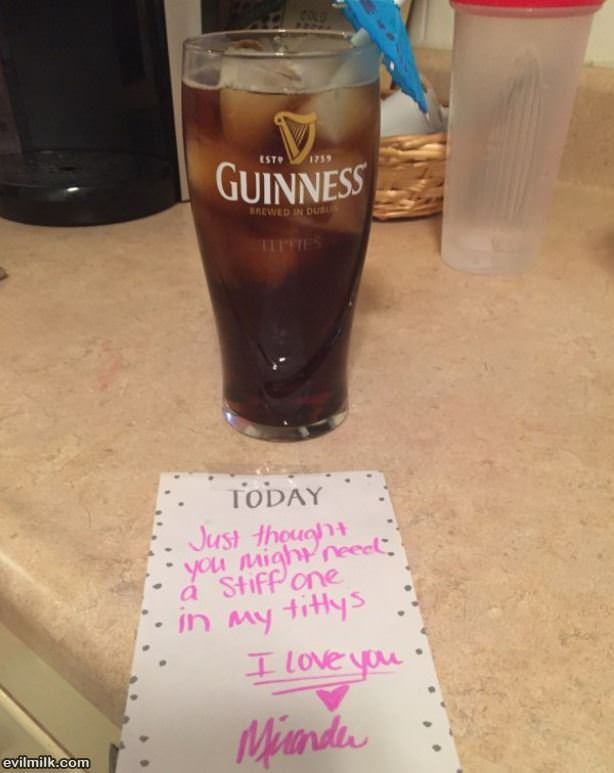 COLD
ESTD 1759
GUINNESS
BREWED IN DUBLIN
TODAY
Just thought
you might need
a stiff one
in my tittys
I love you
Miranda
evilmilk.com